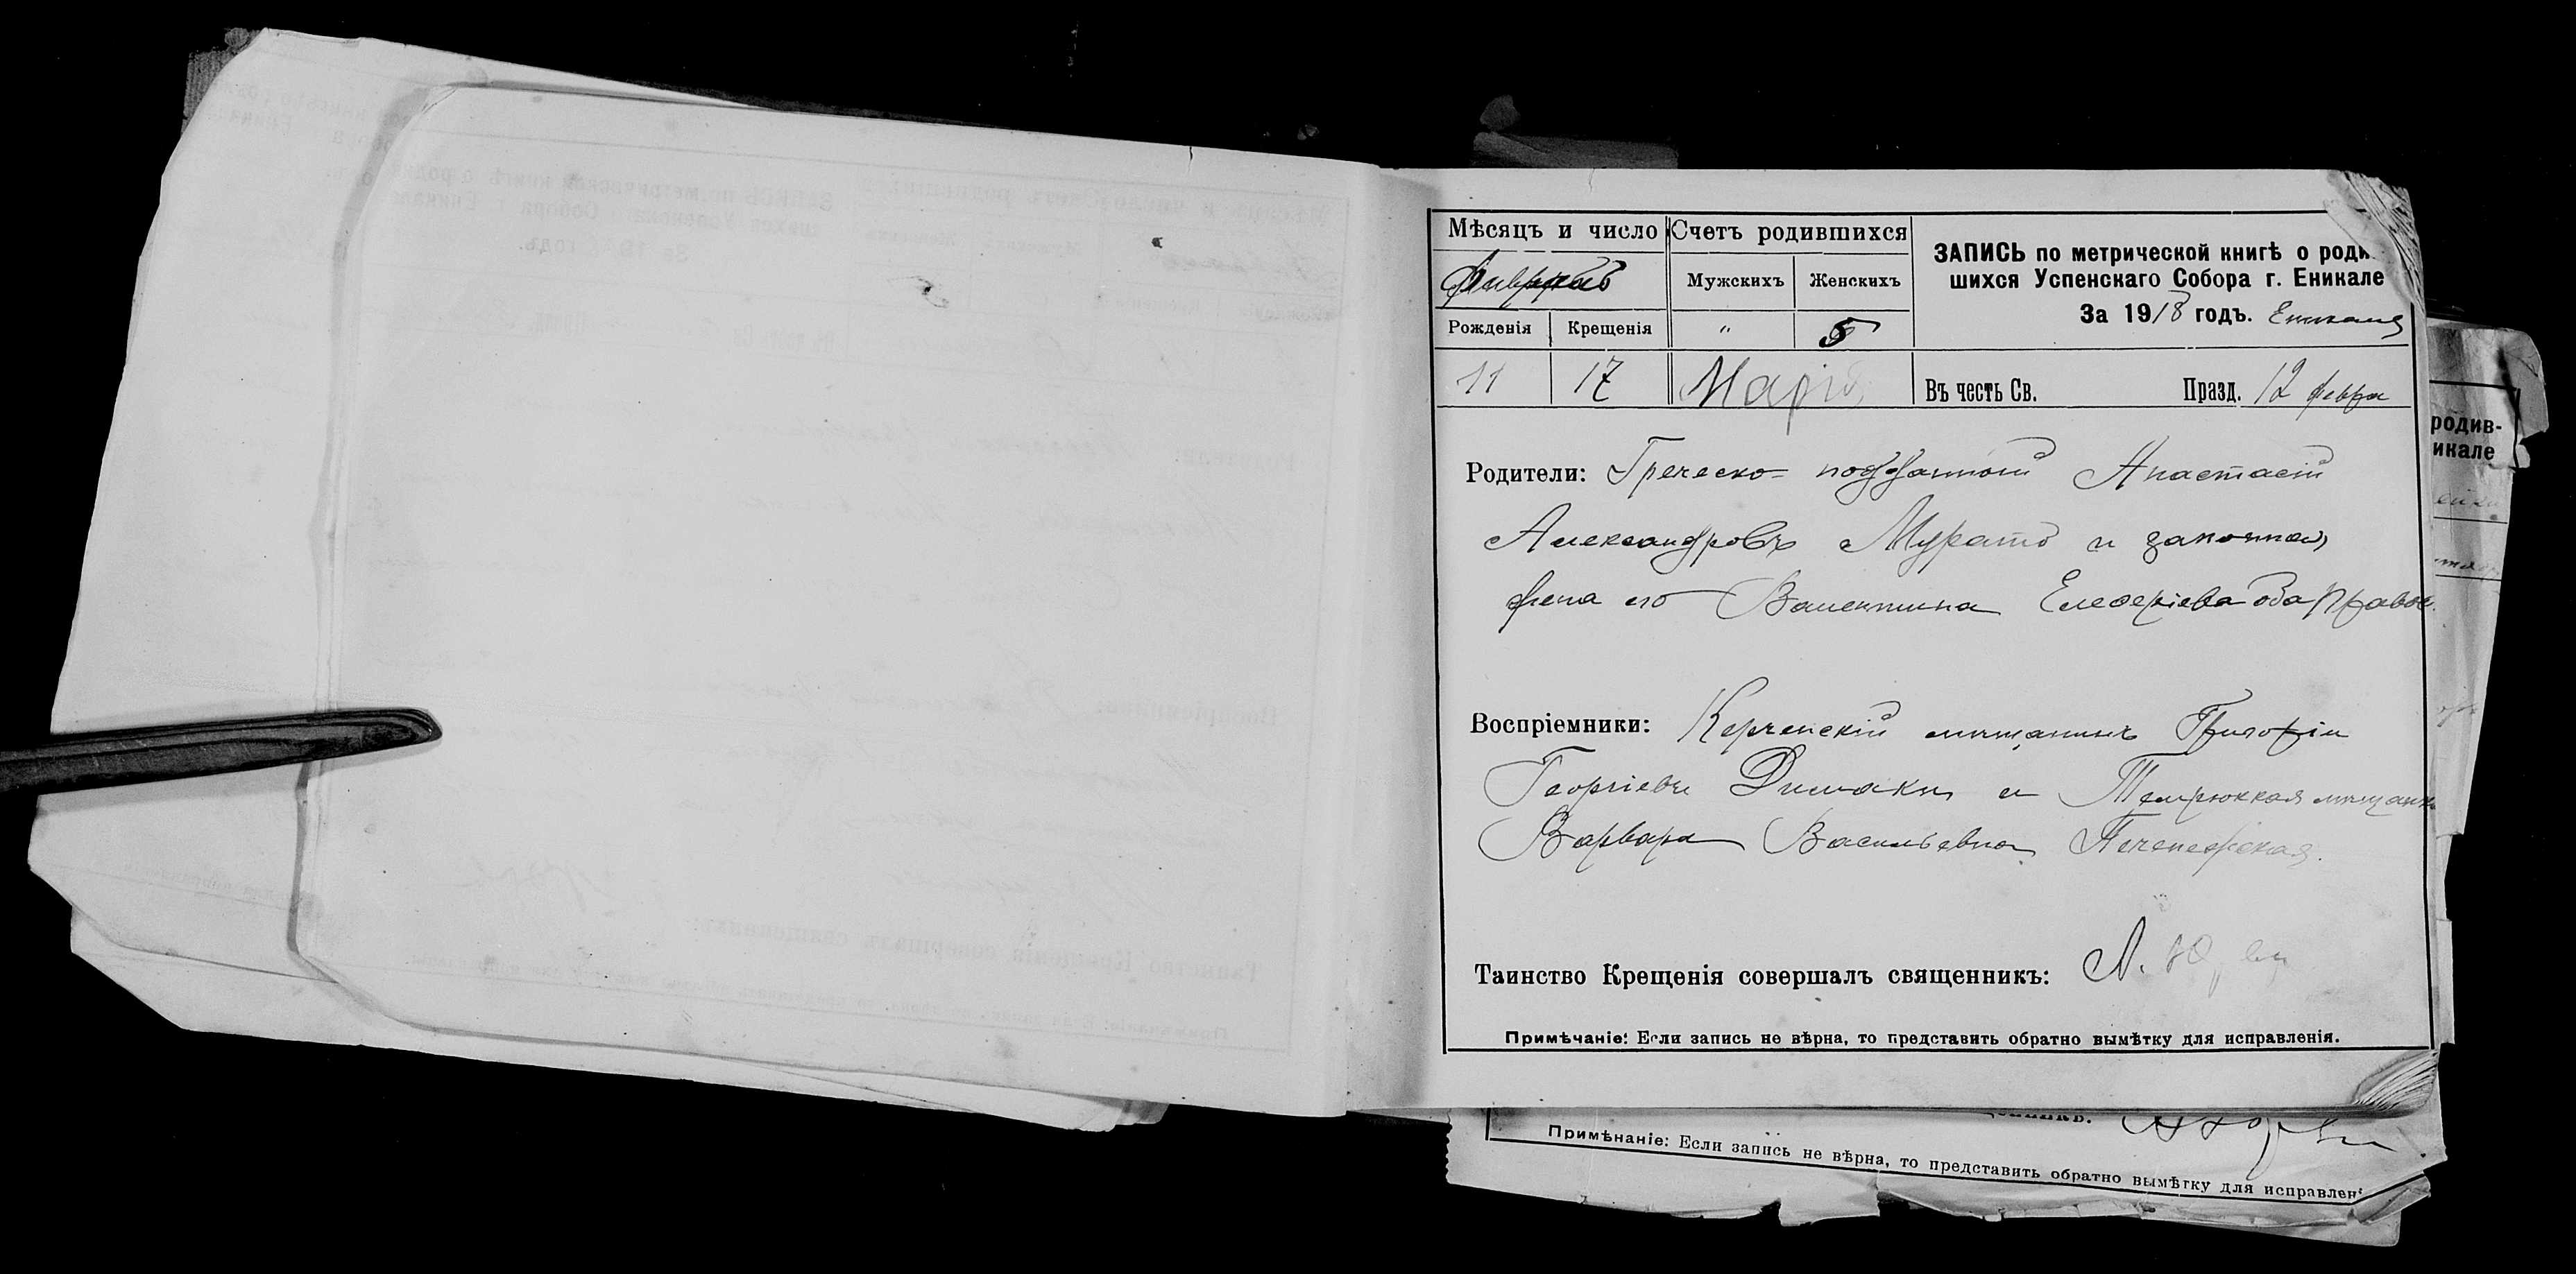 Мѣсяцъ и число
Счетъ родившихся
ЗАПИСЬ по метрической книгѣ о роди
шихся Успенскаго Собора г. Еникале
За 1918 годъ. Еникале
Февраль
Мужскихъ
Женскихъ
Рожденія
Крещенія
"
5
11
17
Марія
Въ честь Св.
Празд. 12 февра
Родители: Греческо-подданный Анастасій
Александровъ Мурато и законная
жена его Валентина Елевѳеріева оба правос.
Воспріемники: Керченскій мѣщанинъ Григорій
Георгіевъ Димаки и Темрюкская мѣщанка
Варвара Васильевна Печенежская.
Таинство Крещенія совершалъ священникъ:
Примѣчаніе: Если запись не вѣрна, то представить обратно вымѣтку для исправленія.
родив-
икале
Примѣнаніе: Если запись не вѣрна, то представить обратно вымѣтку для исправлен